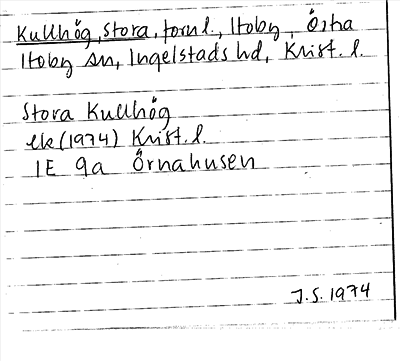 Kullhög, stora, fornl., Hoby, Östra
Hoby sn, Ingelstads hd, Krist. l.
Stora Kullhög
ek (1974) Krist. l.
1E 9a Örnahusen
J.S. 1974